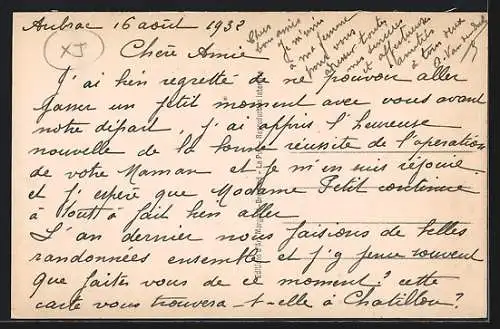 Aubrac 16 août 1932
XJ
Chère Amie
J'ai bien regretté de ne pouvoir aller
passer un petit moment avec vous avant
notre départ, j'ai appris l'heureuse
nouvelle de la bonne réussite de l'opération
de votre Maman et je m'en suis réjouie
et j'espère que Madame Petit continue
à tout à fait bien aller
L'an dernier nous faisions de belles
randonnées ensemble et j'y pense souvent
que faites vous de ce moment? cette
carte vous trouvera-t-elle à Chatillon?
Chers
bons amis
je m'unis
à ma femme
pour vous
toutes
et affectueuses
amitiés
à tous deux